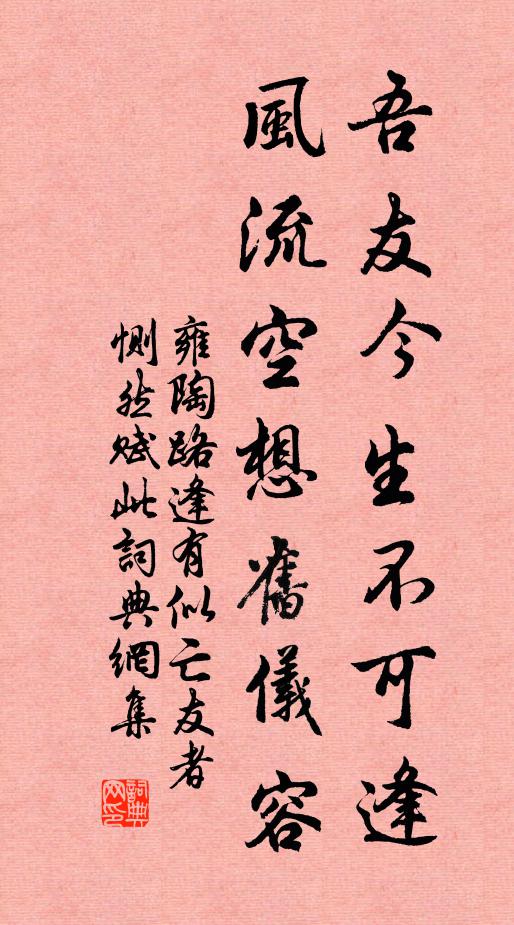 吾友今生不可逢
風流空想舊儀容
雍陶路逢有似亡友者
惻然賦此詞典網集
詞典
网印